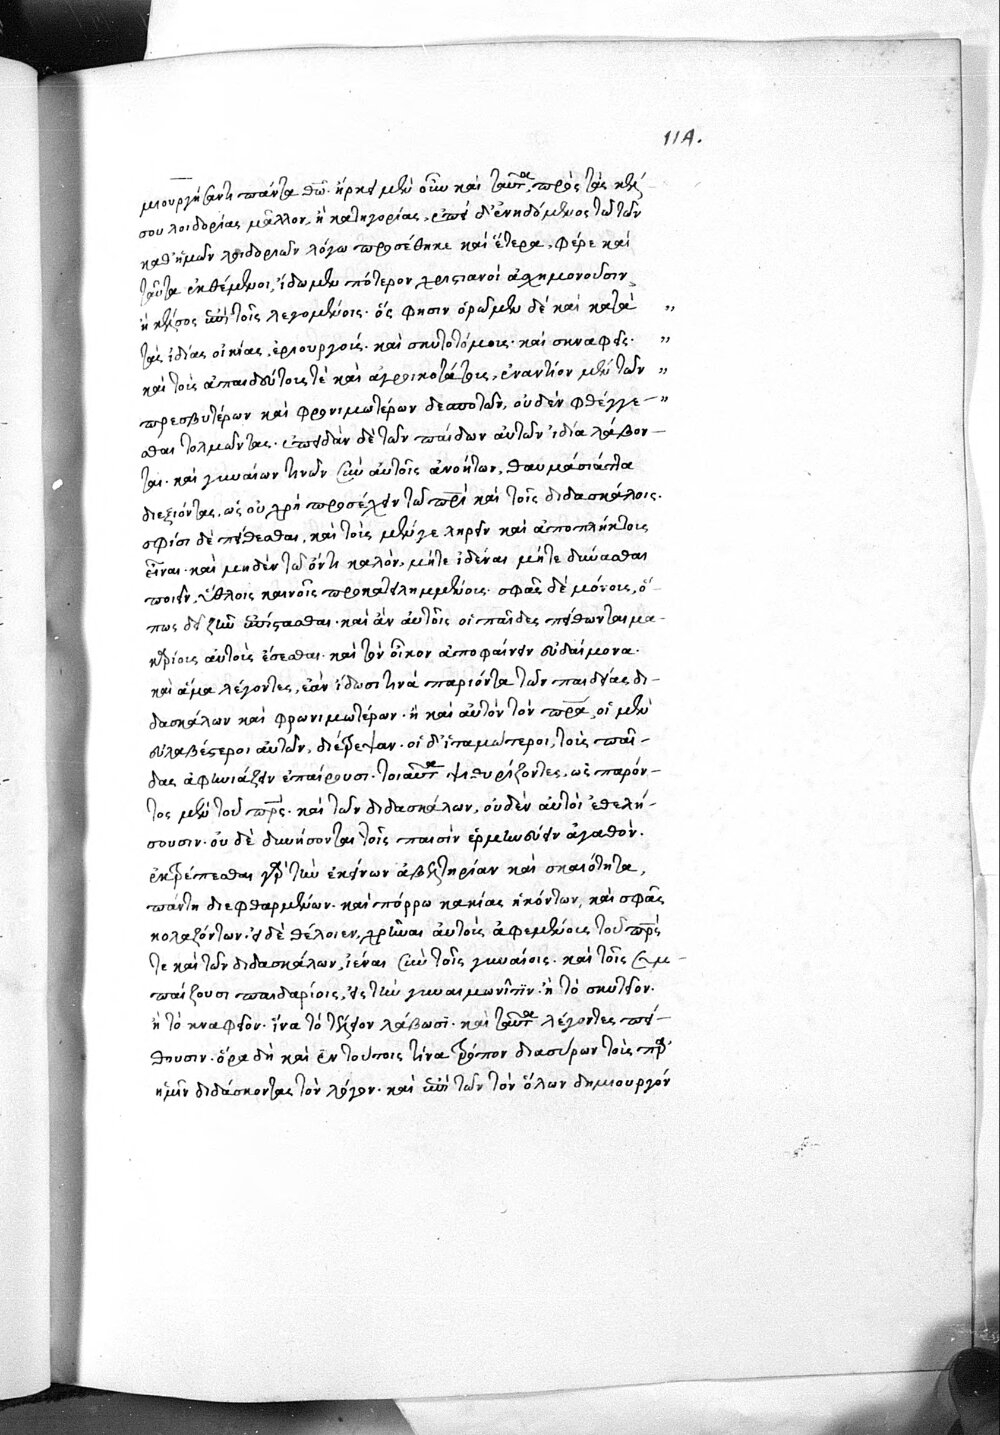 114.
μιουργήσαντι πάντα θῶ· ἤρκει μὲν οὖν καὶ ταῦτα, πρὸς τὰς κέλ-
σου λοιδορίας μᾶλλον, ἢ κατηγορίας, ἐπεὶ δ' ἐνηδόμενος τῶ τῶν
καθ' ἡμῶν λοιδοριῶν λόγω προσέθηκε καὶ ἕτερα, φέρε καὶ
ταῦτα ἐκθέμενοι, ἴδωμεν πότερον χριστιανοὶ ἀσχημονοῦσιν
ἢ κέλσος ἐπὶ τοῖς λεγομένοις· ὅς φησιν ὁρῶμεν δὲ καὶ κατὰ „
τὰς ἰδίας οἰκίας, ἐριουργοὺς· καὶ σκυτοτόμους· καὶ κναφεῖς· „
καὶ τοὺς ἀπαιδευτοτάτους τὲ καὶ ἀγροικοτάτους, ἐναντίον μὲν τῶν „
πρεσβυτέρων καὶ φρονιμωτέρων δεσποτῶν, οὐδὲν φθέγγε- „
σθαι τολμῶντας· ἐπειδὰν δὲ τῶν παίδων αὐτῶν ἰδία λάβον-
ται· καὶ γυναίων τινῶν σὺν αὐτοῖς ἀνοήτων, θαυμάσι' ἄττα
διεξιόντας, ὡς οὐ χρὴ προσέχειν τῶ πρὶ καὶ τοῖς διδασκάλοις·
σφίσι δὲ πείθεσθαι, καὶ τοὺς μέν γε ληρεῖν καὶ ἀποπλήκτους
εἶναι· καὶ μηδὲν τῶ ὄντι καλὸν, μήτε εἰδέναι μήτε δύνασθαι
ποιεῖν, ὕθλοις καινοῖς προκατειλημμένους· σφᾶς δὲ μόνους, ὅ-
πως δεῖ ζῆν ἐπίστασθαι· καὶ ἂν αὐτοῖς οἱ παῖδες πείθωνται μα-
καρίους αὐτοὺς ἔσεσθαι· καὶ τὸν οἶκον ἀποφαίνειν εὐδαίμονα·
καὶ ἅμα λέγοντες, ἐὰν ἴδωσί τινα παριόντα τῶν παιδείας δι-
δασκάλων καὶ φρονιμωτέρων· ἢ καὶ αὐτὸν τὸν πρα, οἱ μὲν
εὐλαβέστεροι αὐτῶν, διέτρεψαν· οἱ δ' ἰταμώτεροι, τοὺς παῖ-
δας ἀφηνιάζειν ἐπαίρουσι· τοιαῦτα ψιθυρίζοντες, ὡς παρόν-
τος μὲν τοῦ πρς· καὶ τῶν διδασκάλων, οὐδὲν αὐτοὶ ἐθελή-
σουσιν· οὐδὲ δυνήσονται τοῖς παισὶν ἑρμηνεύειν ἀγαθὸν·
ἐκτρέπεσθαι γὰρ τὴν ἐκείνων ἀβελτηρίαν καὶ σκαιότητα,
πάντη διεφθαρμένων· καὶ πόρρω κακίας ἡκόντων, καὶ σφᾶς
κολαζόντων· εἰ δὲ θέλοιεν, χρῆναι αὐτοὺς ἀφεμένους τοῦ πρς
τε καὶ τῶν διδασκάλων, ἰέναι σὺν τοῖς γυναίοις· καὶ τοῖς συμ-
παίζουσι παιδαρίοις, εἰς τὴν γυναικωνῖτιν· ἢ τὸ σκυτεῖον·
ἢ τὸ κναφεῖον· ἵνα τὸ τέλειον λάβωσι· καὶ ταῦτα λέγοντες πεί-
θουσιν· ὅρα δὴ καὶ ἐν τούτοις τίνα τρόπον διασύρων τοὺς παρ'
ἡμῖν διδάσκοντας τὸν λόγον· καὶ ἐπὶ τῶν τὸν ὅλων δημιουργόν